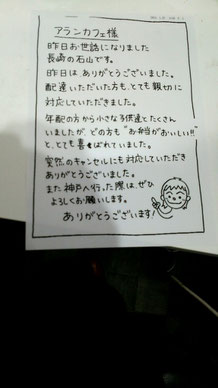 アランカフェ様
昨日お世話になりました
長崎の石山です。
昨日は ありがとうございました。
配達いただいた方も、とても親切に
対応していただきました。
年配の方から小さな子供達とたくさん
いましたが、どの方も"お弁当がおいしい!!"
と、とても喜ばれていました。
突然のキャンセルにも対応していただき
ありがとうございました。
また神戸へ行った際は、ぜひ
よろしくお願いします。
ありがとうございます!